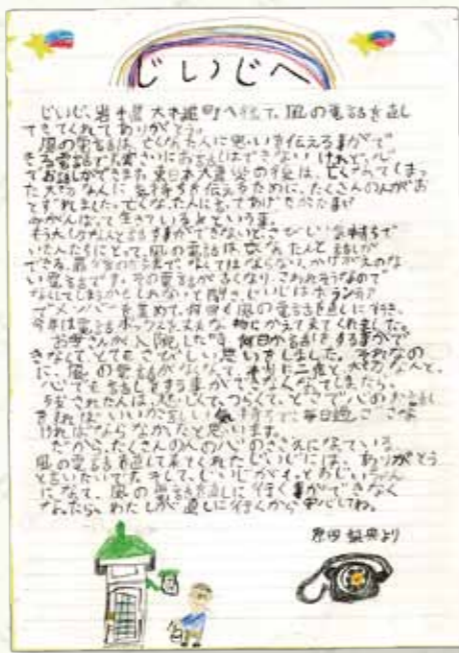 じいじへ
じいじ、岩手県大槌町へ行って、風の電話を直し
てきてくれてありがとう。
風の電話は、亡くなった人に思いを伝える事がで
きる電話です。実さいにお話しはできないけれど、心
でお話しができます。東日本大震災の後は、亡くなってしまっ
た大切な人に気持ちを伝えるために、たくさんの人がお
とずれました。亡くなった人に
がんばって生きているよという事。
もう大切な人と話す事ができないさびしい気持ちで
いた人たちにとって、風の電話は亡くなった人と話しが
できる、なくてはならない、かけがえのな
い電話です。その電話が古くなり、こわれそうなので
なくしてしまうかもしれないと聞き、じいじはボランティア
でメンバーを集めて、何回も風の電話を直しに行き、
今年は電話ボックスを丈夫な物にかえて来てくれました。
お母さんが入院した時、何日か会話をする事がで
きなくて、とてもさびしい思いをしました。それなの
に、風の電話がなくなって、本当に二度と大切な人と、
心でも話しをする事ができなくなってしまったら、
残された人は、悲しくて、つらくて、どこで心のお話しを
すればいいか苦しい気持ちで毎日過ごさな
ければならなかったと思います。
だから、たくさんの人の心のささえになっている
風の電話を直して来てくれたじいじには、ありがとう
と言いたいです。そして、じいじがもっとおじいさん
になって、風の電話を直しに行く事ができなく
なったら、わたしが直しに行くから安心してね。
より